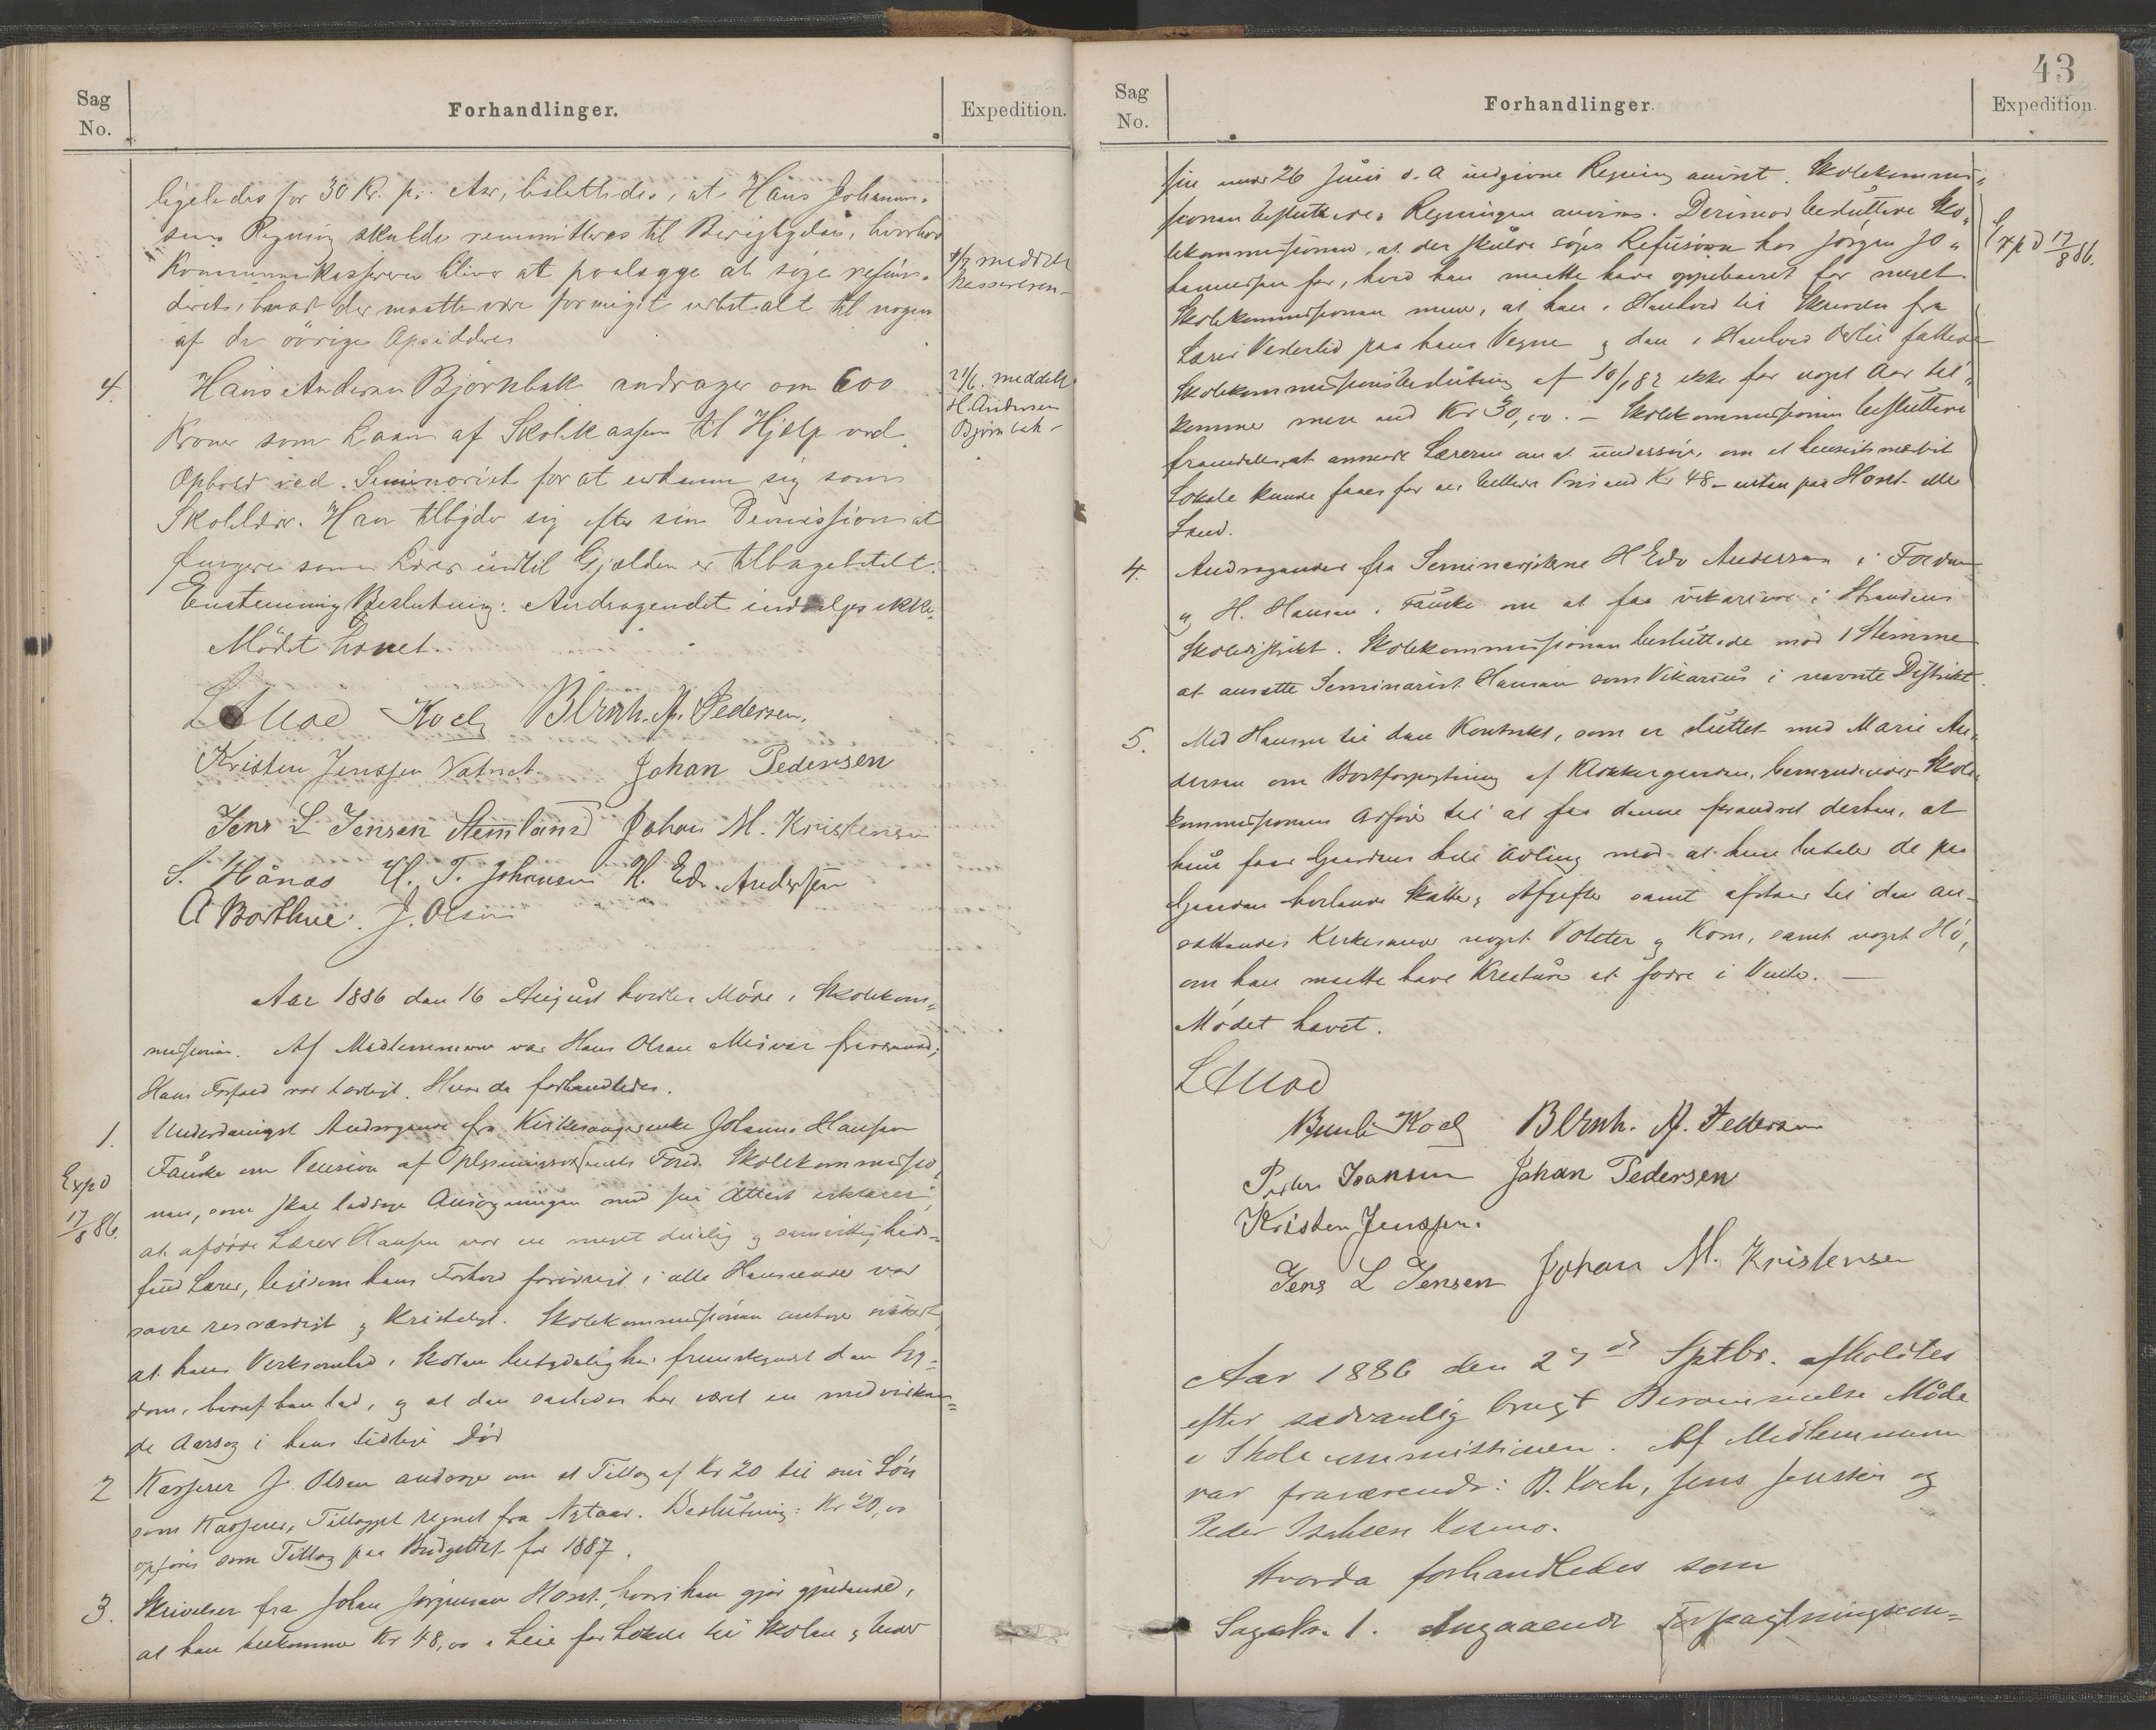 Sag
No.
Forhandlinger.
Expedition.
ligeledes for 30 Kr. pr. Aar, besluttedes, at Hans Johann-
sens Regning skulde remmitteres til Berigtigelse, hvorhos
Kommunekassereren bliver at paalægge at søge refun-
deret, hvad der maatte være formeget udbetalt til nogen
af de øvrige Opsiddere
4/7 meddelt
Kassereren
4. Hans Andersen Bjørnbak andrager om 600
Kroner som Laan af Skolekassen til Hjælp ved
Ophold ved Seminariet for at uddanne sig som
Skolelærer. Han tilbyder sig efter sin Demission at
fungere som Lærer indtil Gjælden er tilbagebetalt.
Enstemmig Beslutning: Andragendet indvilges ikke.
Mødet hævet.
21/6. meddelt
H. Andersen
Bjørnbak
Koch Bernh. A. Pedersen.
Kristen Jenssen Vatnet. Johan Pedersen
Jens L Jensen Stemland Johan M. Kristensen
S. Hånes H. T. Johansen H. Edv. Andersen
A Borthne. J. Olsen
Aar 1886 den 16 August holdtes Møde i Skolekom-
missionen. Af Medlemmerne var Hans Olsen Misvær fraværende;
Hans Forfald var lovligt. Hvor da forhandledes.
1. Underdanigst Andragende fra Kirkesangerenke Johanna Hansen
Fauske om Pension af Oplysningsvæsenets Fond. Skolekommissio-
nen, som skal ledsage Ansøgningen med sin Attest erklærer,
at afdøde Lærer Hansen var en meget duelig og samvittigheds-
fuld Lærer, ligesom hans Forhold forøvrigt i alle Henseender var
saare resværdigt og kristeligt. Skolekommissionen antager sikkert,
at hans Verksomhed i Skolen betydelig har fremskyndet den Syg-
dom, hvoraf han led, og at den saaledes har været en medvirken-
de Aarsag i hans tidlige Død
Expd
17/8 86.
2 Kasserer J. Olsen andrager om et Tillæg af Kr 20 til sin Løn
som Kasserer, Tillægget regnet fra Nytaar. Beslutning: Kr 20,00
opføres som Tillæg paa Budgettet for 1887.
3. Skrivelse fra Johan Jørgensen Hont, hvori han gjør gjældende,
at han tilkommer Kr 48,00 i Leie for Lokale til Skolen og hvor
43
Sag
No.
Forhandlinger.
Expedition.
sin under 26 Juni d. A indgivne Regning anvist. Skolekommis-
sionen besluttede: Regningen anvises. Derimod besluttede Sko-
lekommissionen, at der skulde søges Refusion hos Jørgen Jo-
hannesen for, hvad han maatte have oppebaaret for meget.
Skolekommissionen mener, at han i Henhold til Skrivelse fra
Lærer Vesterlid paa hans Vegne og den i Henhold dertil fattede
Skolekommissionsbeslutning af 10/1 82 ikke for noget Aar til-
kommer mere end Kr 30,00. – Skolekommissionen besluttede
fremdeles at anmode Læreren om at undersøge, om et hensigtsmæssigt
Lokale kunde faaes for en billigere Pris end Kr 48 – enten paa Hont eller
Lund.
Expd 17/8 86.
4. Andragender fra Seminaristerne H Edv Andersen i
og H. Hansen i Fauske om at faa vikariere i Strandens
Skoledistrikt. Skolekommissionen besluttede mod 1 Stemme
at ansætte Seminarist Hansen som Vikarius i nævnte Distrikt.
5. Med Hensyn til den Kontrakt, som er sluttet med Marie An-
dersen om Bortforpagtning af Klokkergaarden, bemyndiges Skole-
kommissionens Ordfører til at faa denne forandret derhen, at
hun faar Gaardens hele Avling mod at hun betaler de paa
Gaarden heftende Skatter, Afgifter samt afstaar til den an-
sættendes Kirkesanger noget Poteter og Korn, samt noget Hø,
om han maatte have Kreaturer at fodre i Vinter. –
Mødet hævet.
Koch Bernh. A. Pedersen
Peder Isaksen Johan Pedersen
Kristen Jenssen.
Jens L Jensen Johan M. Kristensen
Aar 1886 den 27de Sptbr. afholdtes
efter sædvanlig brugt Berammelse Møde
i Skolekommissionen. Af Medlemmerne
var fraværende: B. Koch, Jens Jenssen og
Peder Isaksen Kosmo.
Hvorda forhandledes som
Sag No. 1. Angaaende Forpagtningscon-